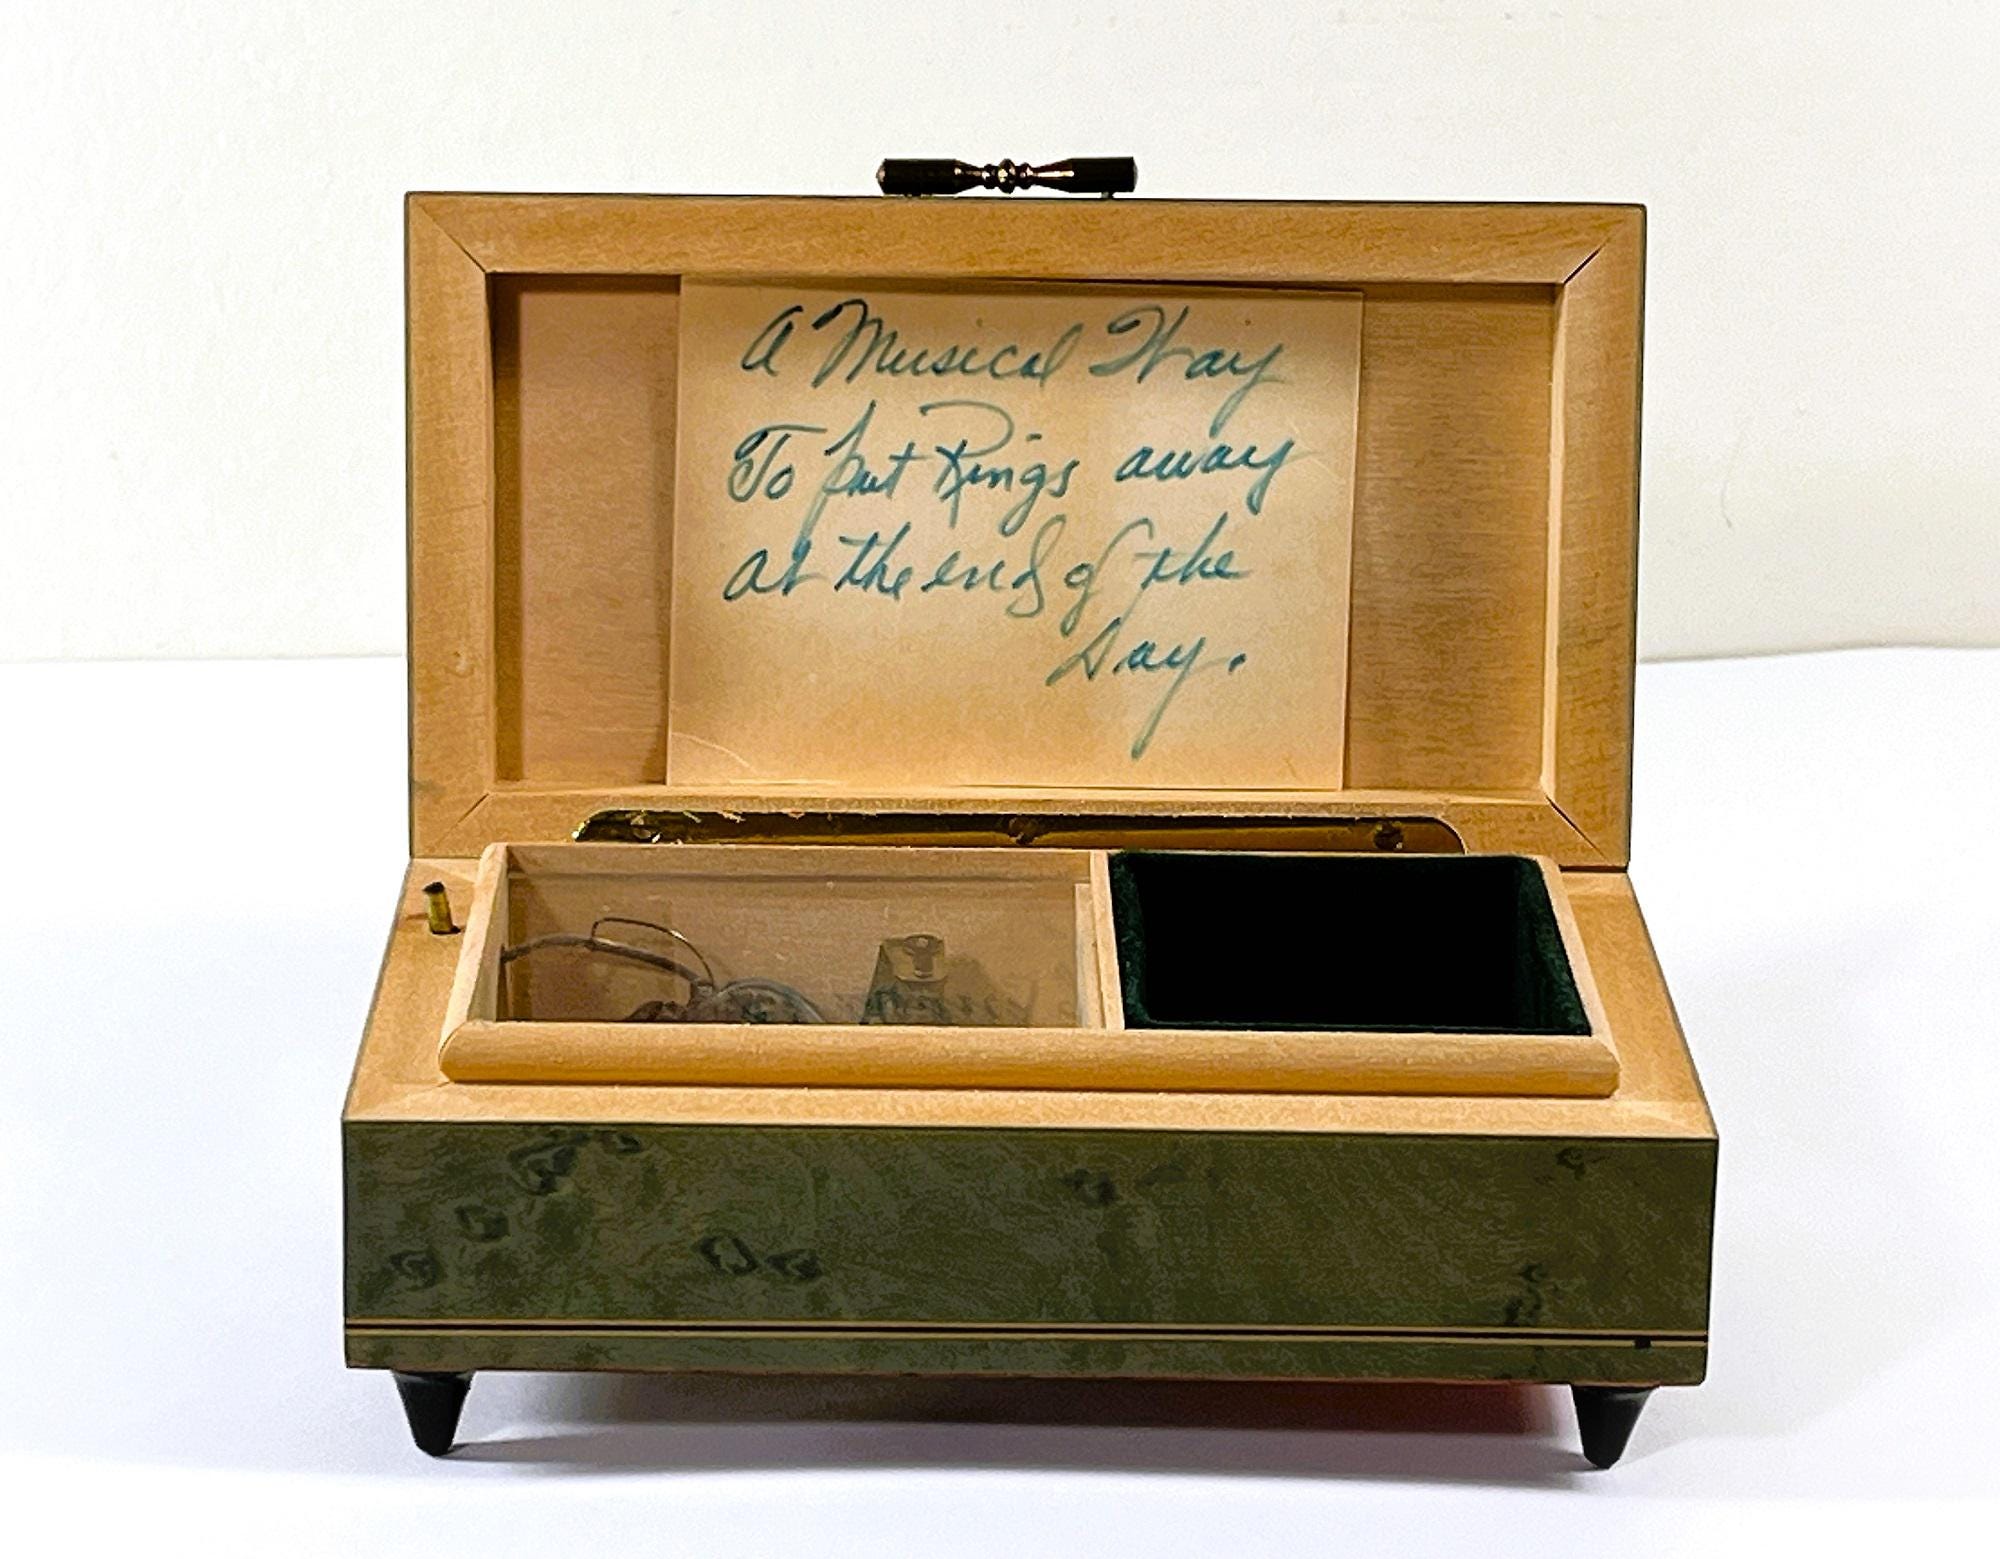 A Musical Way
To put Rings away
at the end of the
Day.